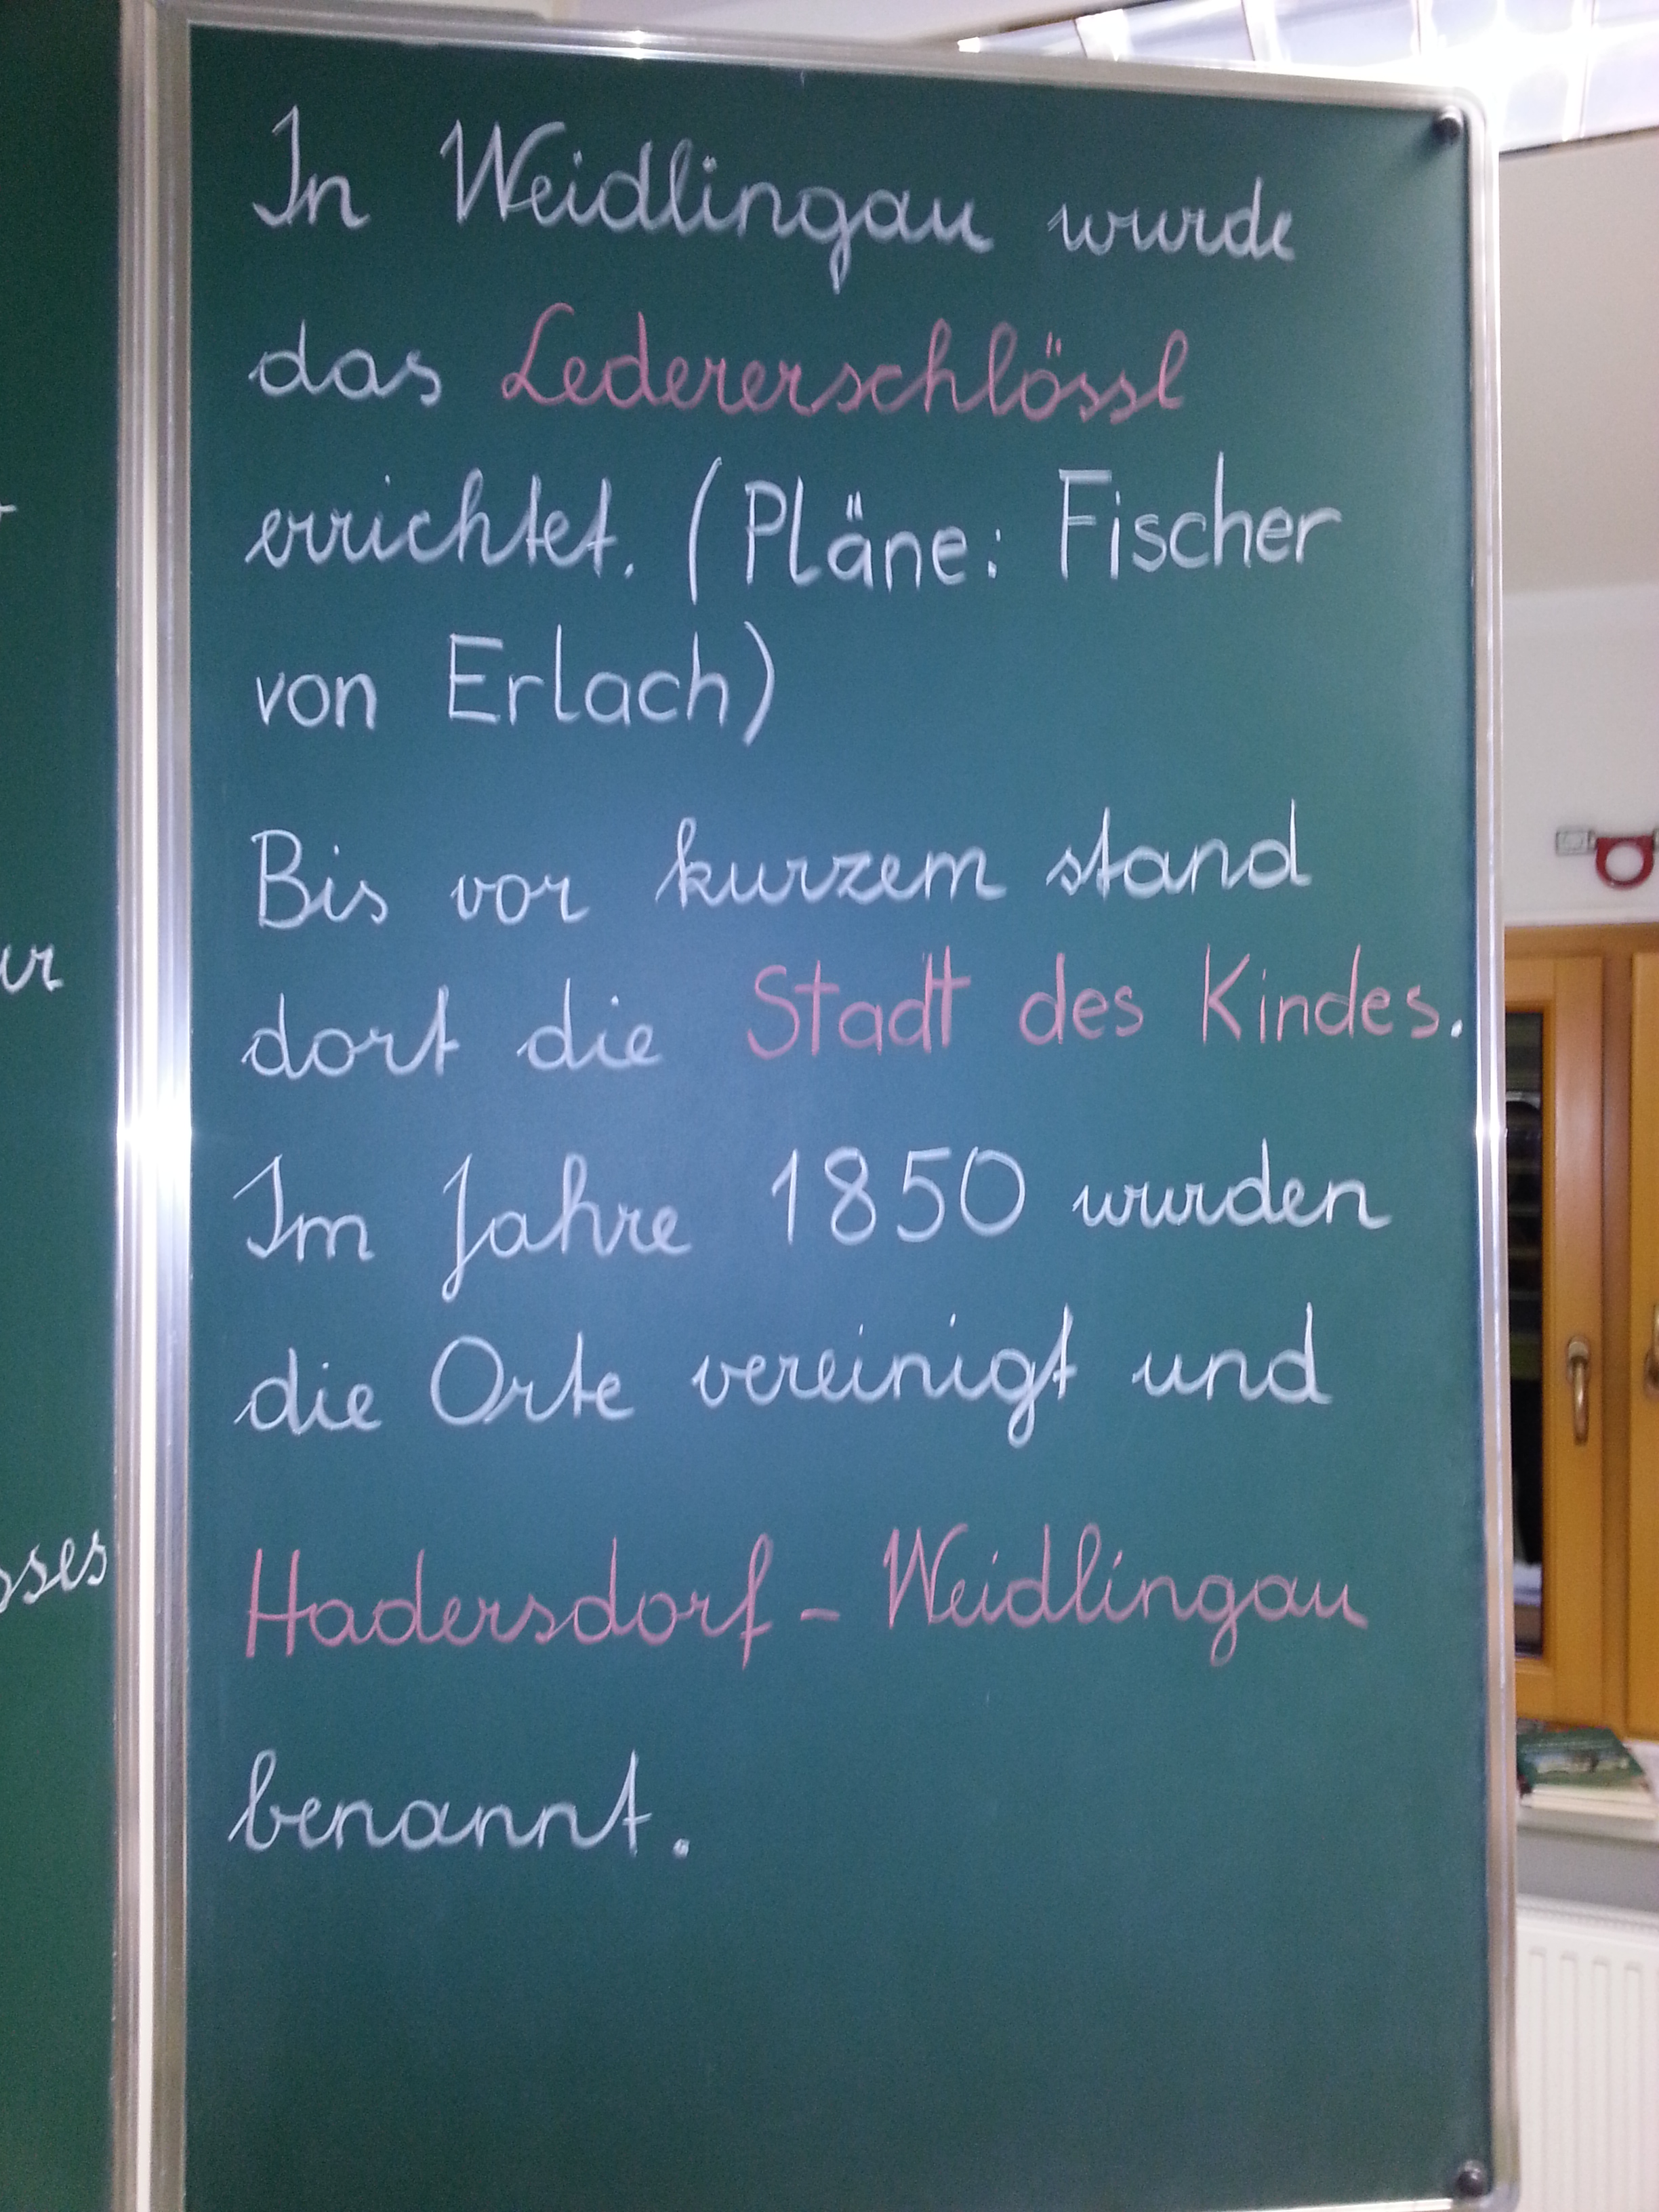 In Weidlingau wurde
das Ledererschlössl
errichtet. (Pläne: Fischer
von Erlach)
Bis vor kurzem stand
dort die Stadt des Kindes.
Im Jahre 1850 wurden
die Orte vereinigt und
Hadersdorf - Weidlingau
benannt.